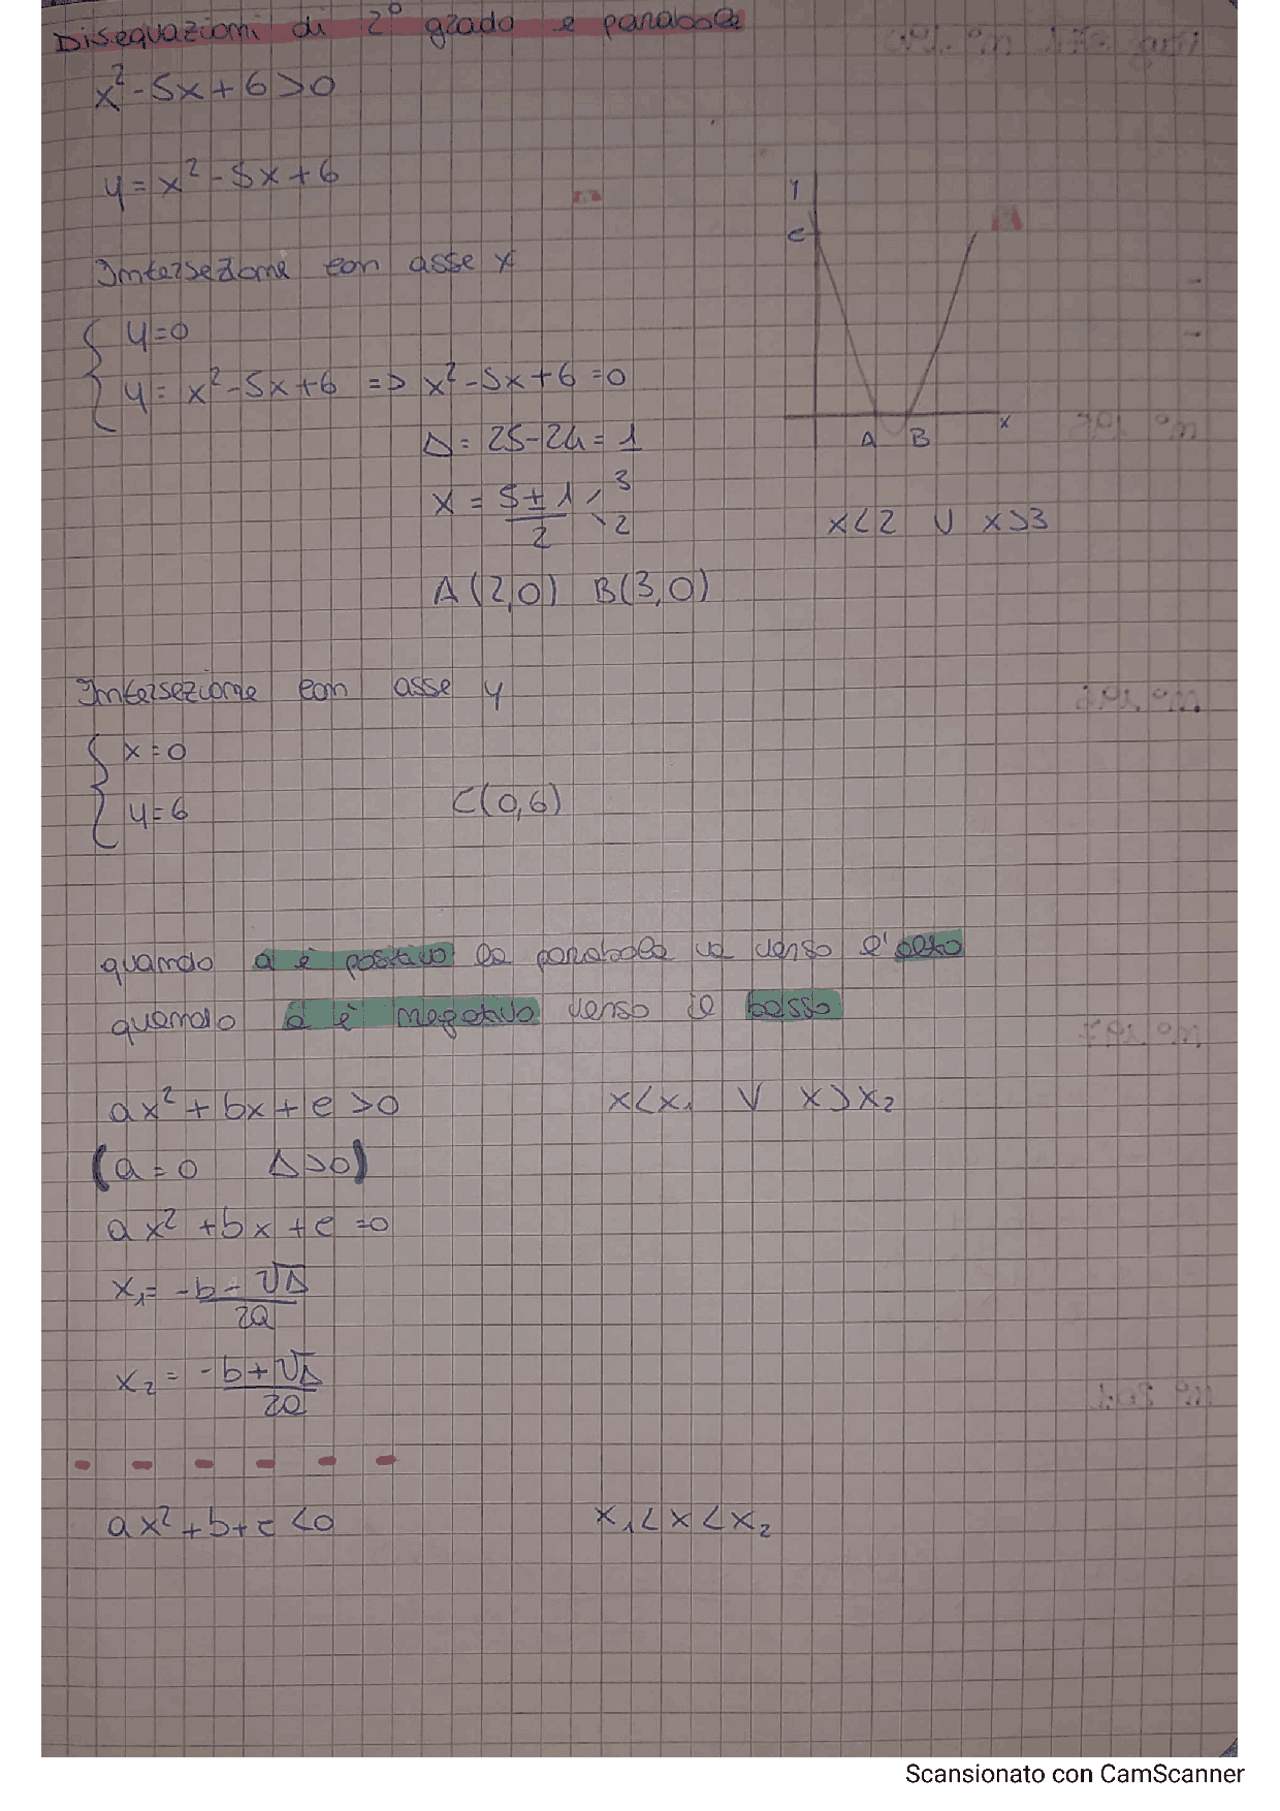 Disequazioni di 2° grado e parabola
x² - 5x + 6 > 0
y = x² - 5x + 6
Intersezione con asse x
{ y = 0
{ y = x² - 5x + 6 => x² - 5x + 6 = 0
Δ = 25 - 24 = 1
x = (5 ± 1)/2 3 2
A(2,0) B(3,0)
y
C
A B x
x < 2 ∪ x > 3
Intersezione con asse y
{ x = 0
{ y = 6 C(0,6)
quando a è positivo la parabola va verso l'alto
quando a è negativo verso il basso
ax² + bx + c > 0 x < x₁ V x > x₂
(a = 0 Δ > 0)
ax² + bx + c = 0
x₁ = (-b - √Δ)/2a
x₂ = (-b + √Δ)/2a
- - - - - -
ax² + b + c < 0 x₁ < x < x₂
Scansionato con CamScanner